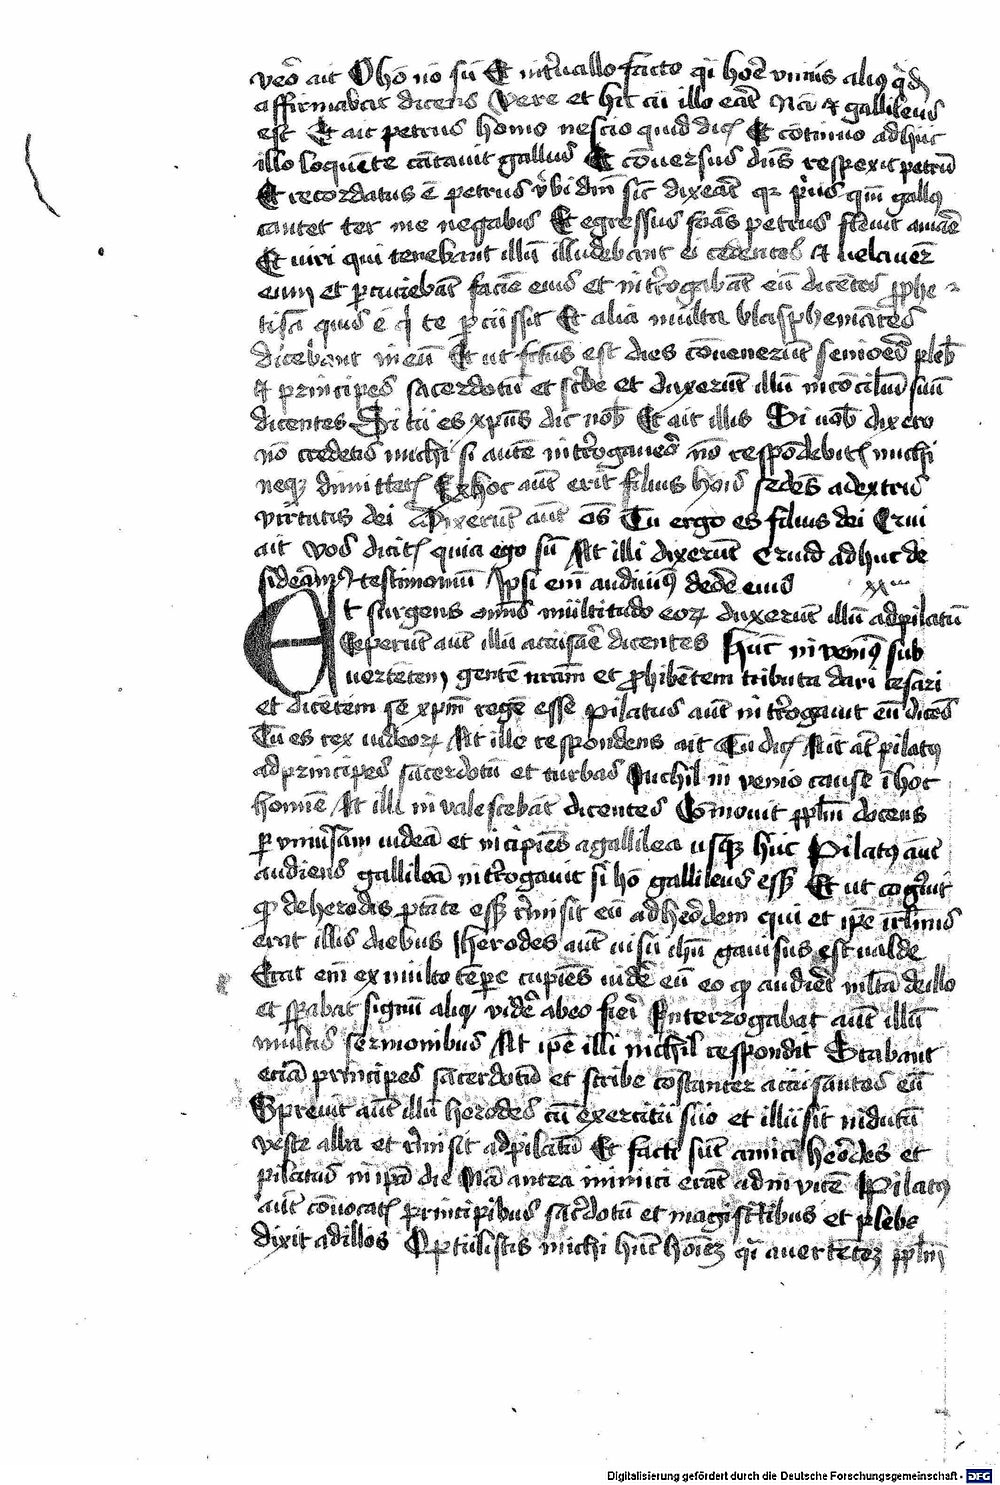 vero ait O hō nō sū Et int̉uallo facto q̄i hore vnius aliꝯ q̄dā
affirmabat dicens Vere et hic cū illo erāt Nā ⁊ galileus
est Et ait petrus homo nescio quid dicꝭ Et cōtinuo adhuc
illo loquēte cātauit gallus Et cōuersus dn̄s respexit petrū
Et recordatus ē petrus v̉bi dn̄i sic̄ dixerāt qꝫ p̉us qm̄ gallꝯ
cantet ter me negabis Et egressus forās petrus fleuit amarē
Et uiri qui tenebant illū illudebant ei cedentes ⁊ uelauer̄
eum et ꝑcuciebāt faciē eius et int̉rogabāt eū dicētes ꝓphe
tisa quis ē q̄ te ꝑcussit Et alia multa blasphemātes
dicebant in eū Et ut fc̄us est dies cōuenerūt seniores pleb̄
⁊ principes sacerdotū et sc̉be et duxerūt illū in cōciliū suū
dicentes Si tu es xp̄us dic nob̄ Et ait illis Si uob̄ dixero
nō credetis michi si autē int̉rogauero nō respōdebitꝭ michi
neqꝫ dimittetꝭ Ex hoc aut̄ erit filius hōis sedēs adextris
virtutis dei Dixerūt aut̄ oēs Tu ergo es filius dei Qui
ait vos dicitꝭ quia ego sū At illi dixerūt Quid adhuc de
sideramꝯ testimoniū Ipsi em̄ audiuimꝯ de ore eius xxiii
Et surgens omīs multitudo eoꝝ duxerūt illū adpilatū
Ceperūt aut̄ illū accusare dicentes Hūc inuenimꝯ sub
uertētem gentē nrām et ꝓhibētem tributa dari cesari
et dicētem se xpm̄ regē esse Pilatus aut̄ int̉rogauit eū dicēs
Tu es rex iudeoꝝ At ille respondens ait Tu dicꝭ Ait at̄ pilatꝯ
ad principes sacerdotū et turbas Nichil inuenio cause ī hoc
homīe At illi inualescebāt dicentes Cōmouit ꝓplm̄ docens
ꝑ vniủsam iudeā et incipiēs a galilea usqꝫ huc Pilatꝯ aut̄
audiens galileā int̉rogauit si hō galileus ess̄ Et ut cogͦuit
qꝫ de herodis ptāte ess̄ r̉misit eū ad herodem qui et ip̄e irl̄imis
erat illis diebus Herodes aut̄ uisu ih̄u gauisus est ualde
Erat em̄ ex multo tēpe cupiēs uid̄e eū eo qꝫ audier̄t ml̄ta de illo
et sꝑabat signū aliqꝫ vid̄e ab eo fieri Interrogabat aut̄ illū
multis sermonibus At ip̄e illi nichil respondit Stabant
eciā principes sacerdotū et scribe cōstanter accusantes eū
Spreuit aut̄ illū herodes cū exercitu suo et illusit indutū
veste alba et r̉misit ad pilatū Et facti sūt amici herodes et
pilatus in ip̄a die Nā antea inimici erāt ad inuicē Pilatꝯ
aut̄ cōuocatꝭ principibus sac̉dotū et magistribus et plebe
dixit ad illos Optulistis michi hūc hoīeꝫ q̄i auertēteꝫ ꝓplm̄
Digitalisierung gefördert durch die Deutsche Forschungsgemeinschaft - DFG